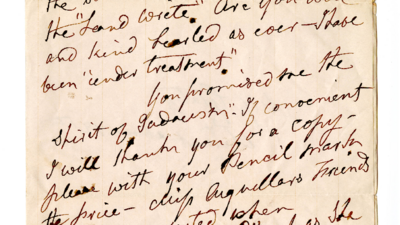 the "Land wrote" Are you well
and kind hearted as ever — I have
been "under treatment"
You promised me the
Spirit of Judaism: If convenient
I will thank you for a copy —
please with your Pencil mark
the price — Miss Aguillar's Friends
when as